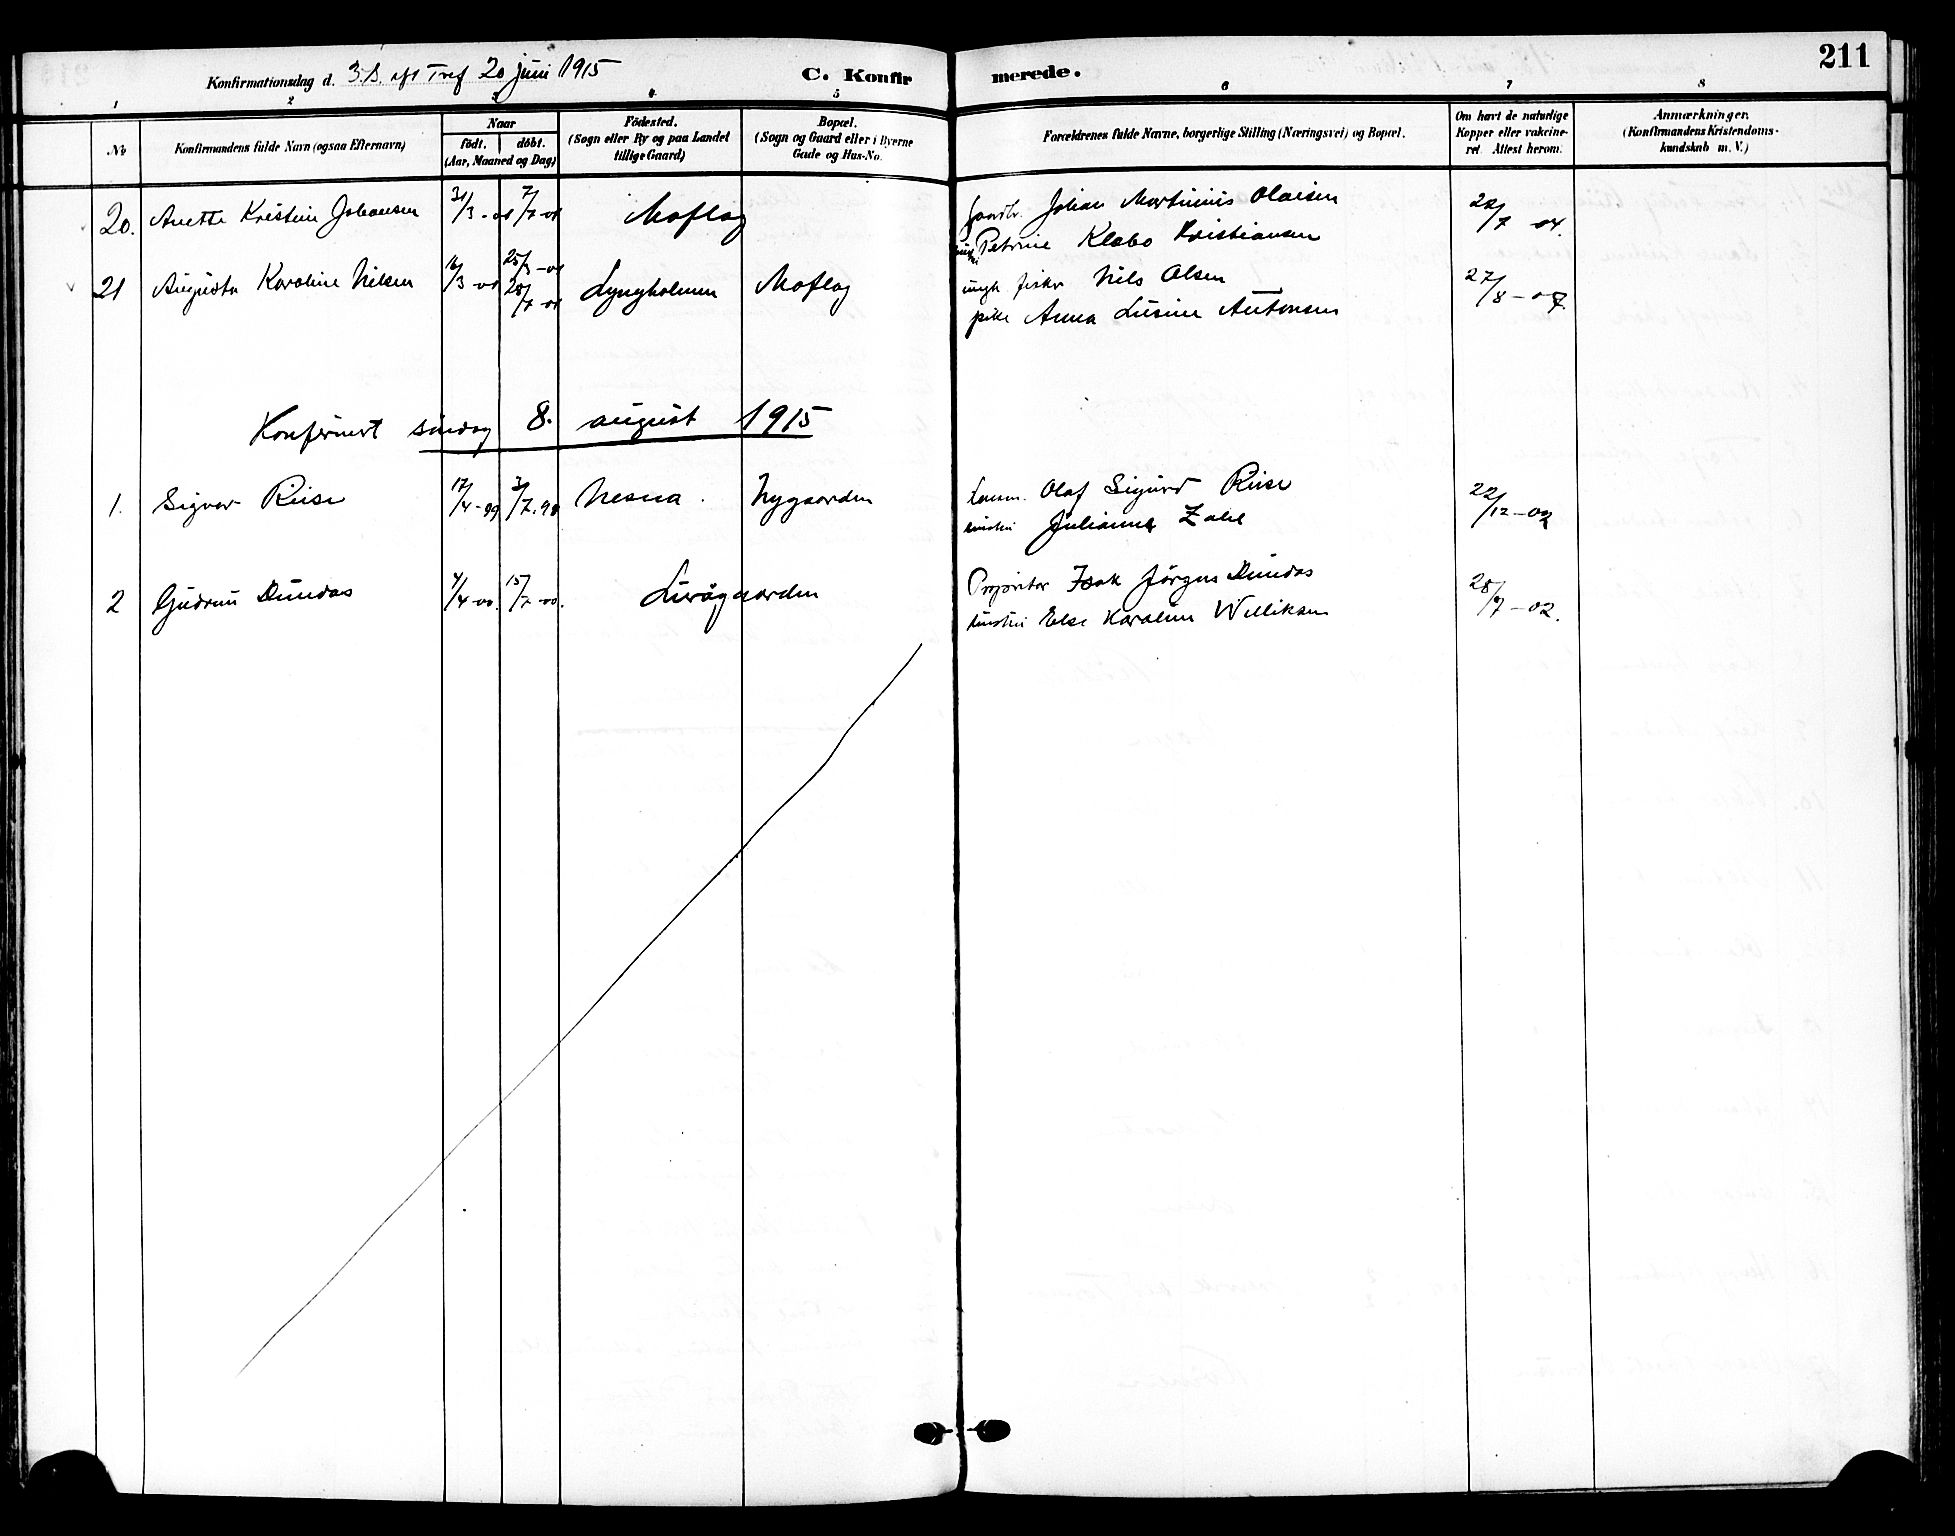 211
Konfirmationsdag d. 3. S. eft Tref 20 juni 1915 C. Konfirmerede.
1 2 3 4 5 6 7 8
No
Konfirmandens fulde Navn (ogsaa Efternavn)
Naar
født. døbt.
(Aar, Maaned og Dag)
Fødested.
(Sogn eller By og paa Landet
tillige Gaard)
Bopæl.
(Sogn og Gaard eller i Byerne
Gade og Hus-No.
Forældrenes fulde Navne, borgerlige Stilling (Næringsvei) og Bopæl.
Om havt de naturlige
Kopper eller vakcine-
ret. Attest herom.
Anmærkninger.
(Konfirmandens Kristendoms-
kundskab m. V.)
20. Anette Kristine Johansen 31/3-01 7/7-01 Moflag Johan Martinius Olaisen 22/7 04.
Petrine Klabo Kristiansen
21 Augusta Karoline Nilsen 16/3-01 25/3-01 28/7-01 Lyngholmen Moflag ungk fisker Nils Olsen 27/8-07
pike Anna Lusine Antonsen
Konfirmert søndag 8. august 1915
1. Sigvar Riise 17/4-99 3/7.99 Nesna. Nygaarden Olaf Sigurd Riise 22/12-02
hustru Julianna Zahl
2 Gudrun Dundas 4/4-00. 15/7-00. Lurøygaarden Proprietær Isak Jørgen Dundas 28/7-02.
hustru Else Karoline Williksen